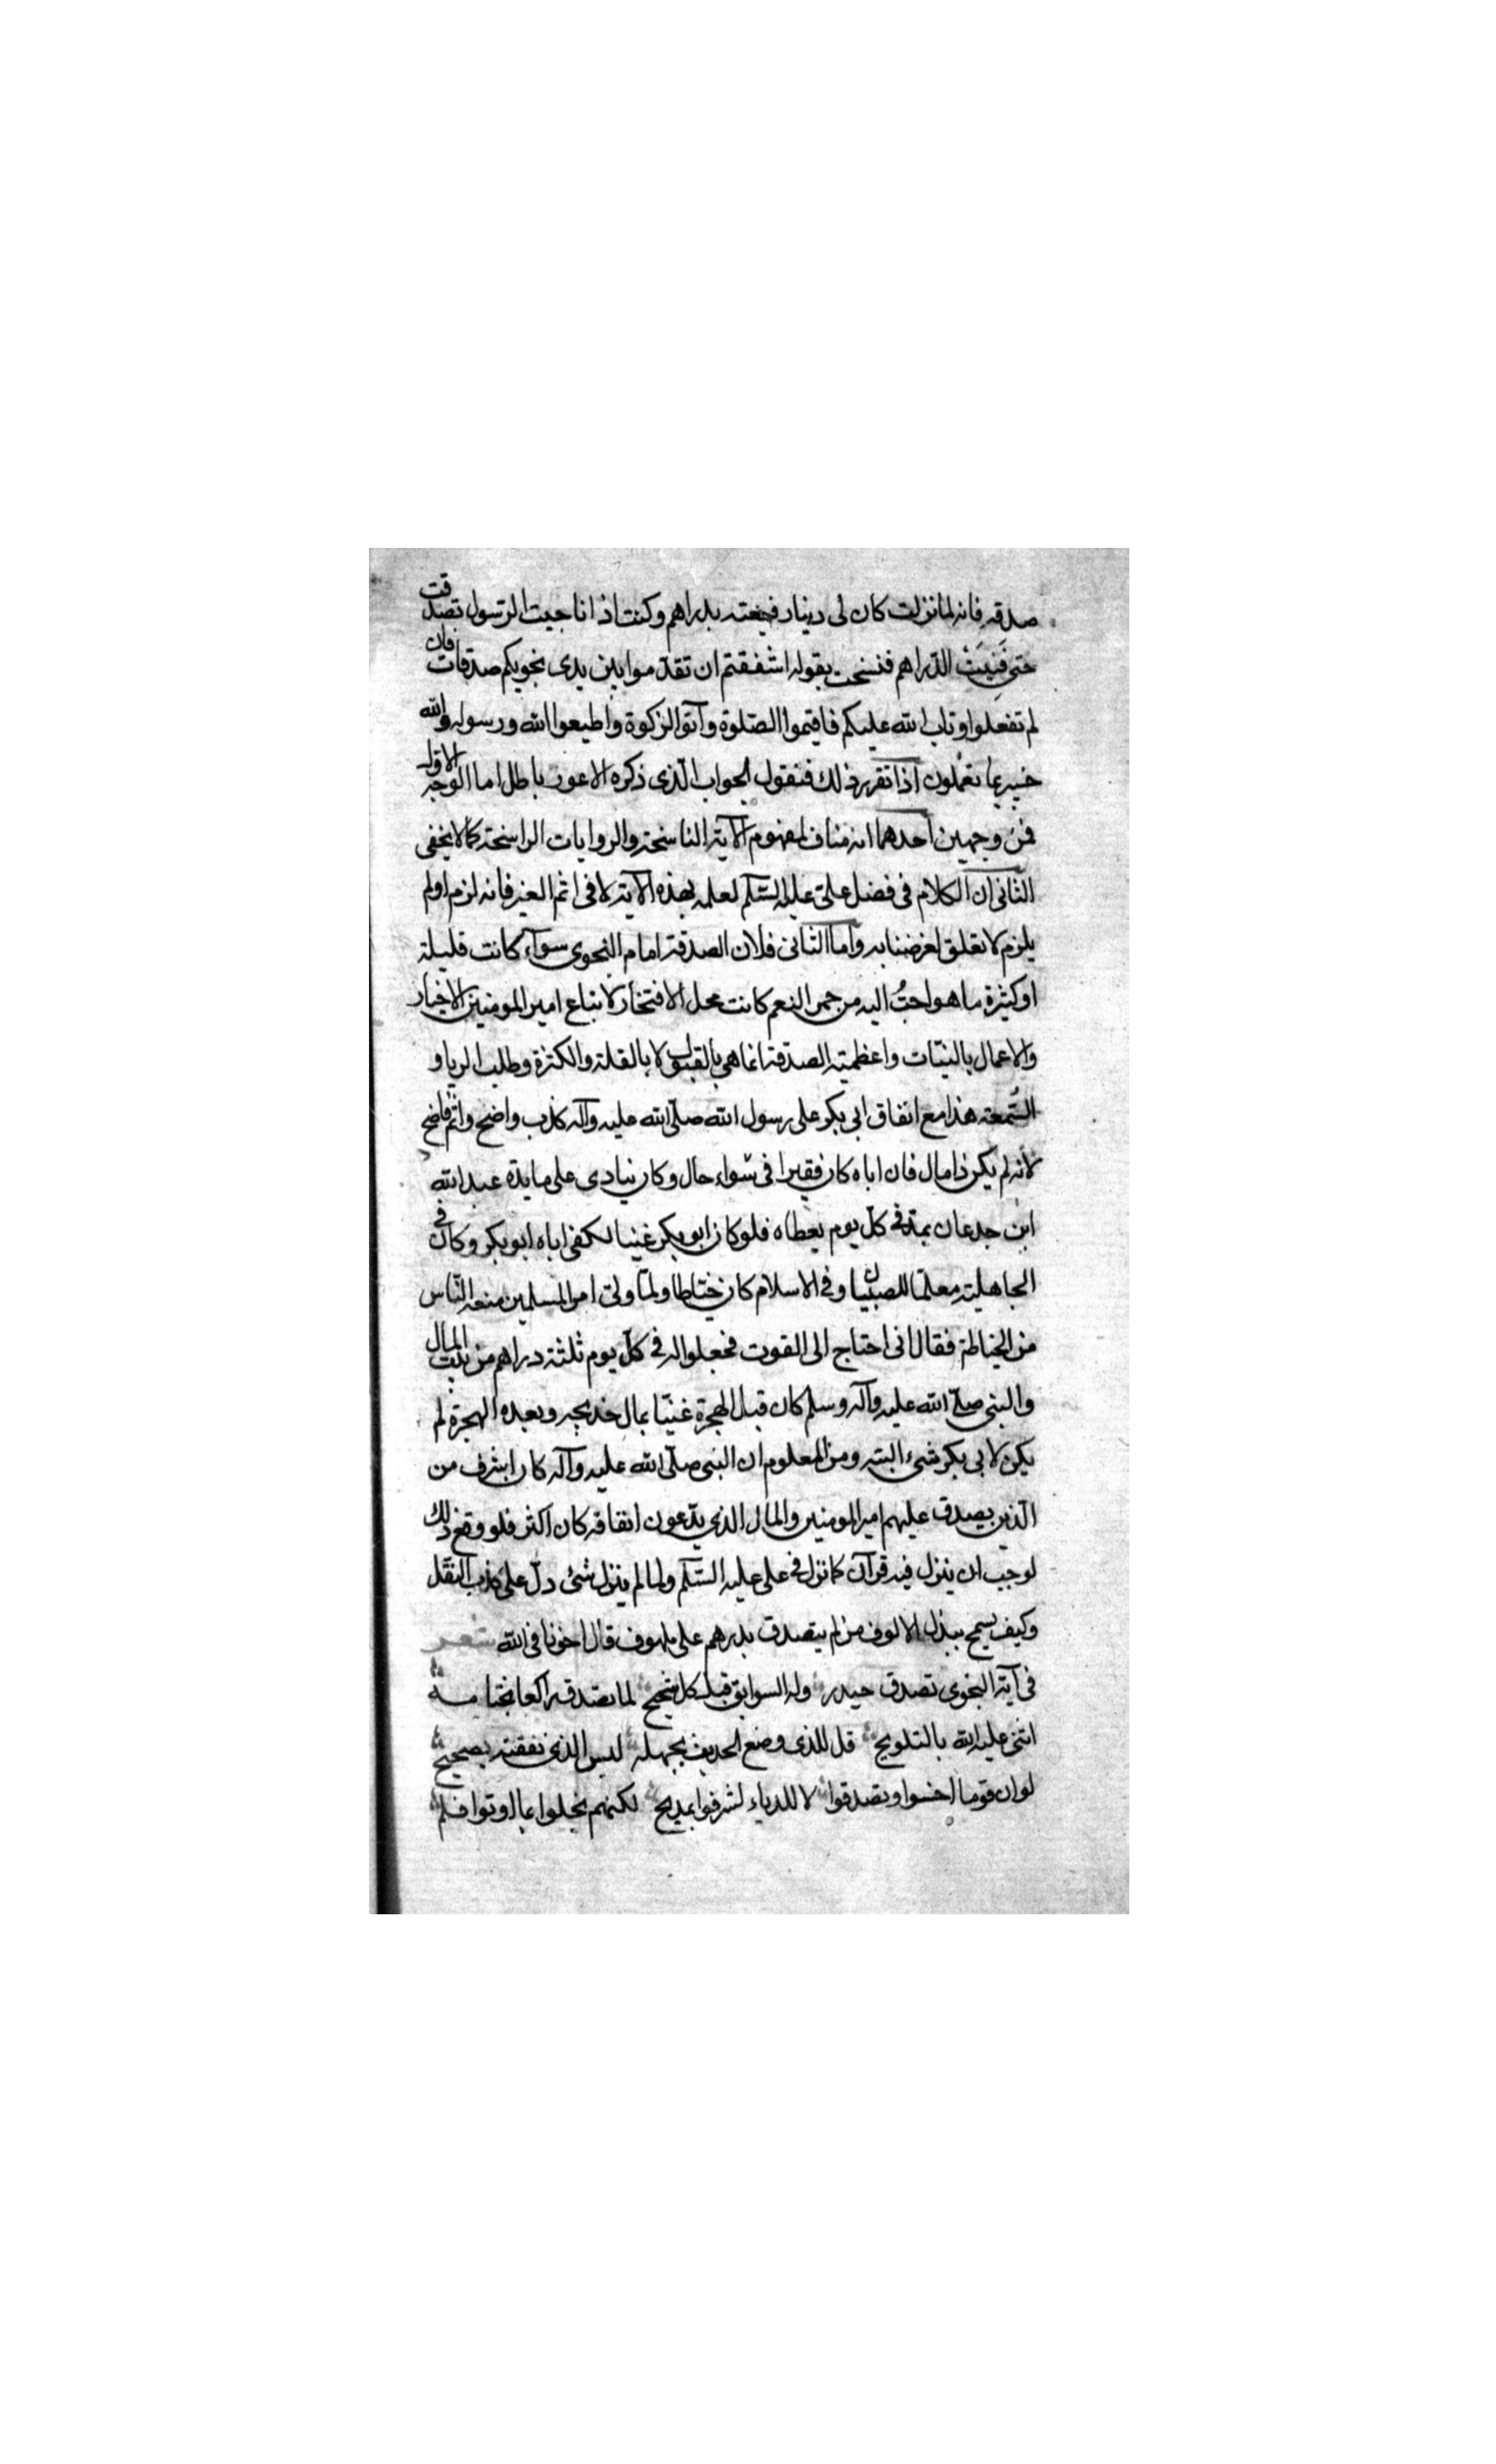 صدقه فانه لما نزلت كان لى دينار فبعته بدراهم وكنت اذا ناجيت الرسول تصدقت
حتى فَنِيَتْ الدّراهم فنسخت بقوله اشفقتم ان تقدّموا بين يدى نجويكم صدقات فان
لم تفعلوا وتاب الله عليكم فاقيموا الصّلوة وآتوا الزكوة واطيعوا الله ورسوله والله
خبير بما تعملون اذا تقرر ذلك فنقول الجواب الّذى ذكره الاعور باطل اما الوجه الاول
فمن وجهين احدهما انه مناف لمفهوم الآية الناسخة والروايات الراسخة كما لا يخفى
الثانى ان الكلام فى فضل علىّ عليه السّلم لعلمه بهذه الآية لا فى اثم الغير فانه لزم او لم
يلزم لا تعلق لغرضنا به واما الثانى فلان الصدقة امام النجوى سوآء كانت قليلة
او كثيرة ما هو احبّ اليه من حمر النعم كانت محل الافتخار لاتباع امير المومنين الاخيار
والاعمال بالنيّات واعظمية الصدقة انما هى بالقبول لا بالقلة والكثرة وطلب الريا و
السُّمعة هذا مع انفاق ابى بكر على رسول الله صلّى الله عليه وآله كذب واضح واثم فاضح
لانه لم يكن ذا مال فان اباه كان فقيرا فى سواء حال وكان ينادى على مايدة عبد الله
ابن جدعان بمدّ فى كلّ يوم يعطاه فلو كان ابو بكر غنيا لكفى اباه ابو بكر وكان فى
الجاهلية معلّما للصبيان وفى الاسلام كان خيّاطا ولمّا ولى امر المسلمين منعه النّاس
من الخياطة فقال انى احتاج الى القوت فجعلوا له فى كلّ يوم ثلثة دراهم من بيت المال
والنبى صلّى الله عليه وآله وسلم كان قبل الهجرة غنيّا بمال خديجه وبعده الهجرة لم
يكن لابى بكر شىء البته ومن المعلوم ان النبى صلّى الله عليه وآله كان اشرف من
الّذين يصدق عليهم امير المومنين والمال الذى يدّعون انفاقه كان اكثر فلو وقع ذلك
لوجب ان ينزل فيه قرآن كما نزل فى على عليه السّلم ولما لم ينزل شىء دلّ على كذب النقل
وكيف يسمح ببذل الالوف من لم يتصدق بدرهم على ملهوف قال اخونا فى الله شعر
فى آية النجوى تصدق حيدر وله السوابق قبل كل شحيح لما تصدق راكعا بخاتمه
اثنى عليه الله بالتلويح قل للذى وضع الحديث بجهله ليس الذى نفقته بصحيح
لو ان قوما احسنوا وتصدقوا لا للرياء لشرفوا بمديح لكنهم بخلوا بما اوتوا فلم